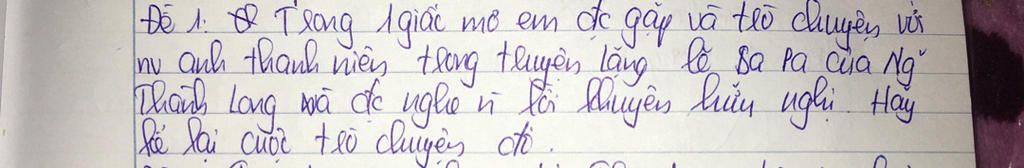 Đề 1: Trong 1 giấc mơ em đc gặp và trò chuyện với
nv anh thanh niên trong truyện lặng lẽ Sa Pa của Ng~
Thành Long và đc nghe n~ lời khuyên hữu nghị. Hãy
kể lại cuộc trò chuyện đó.